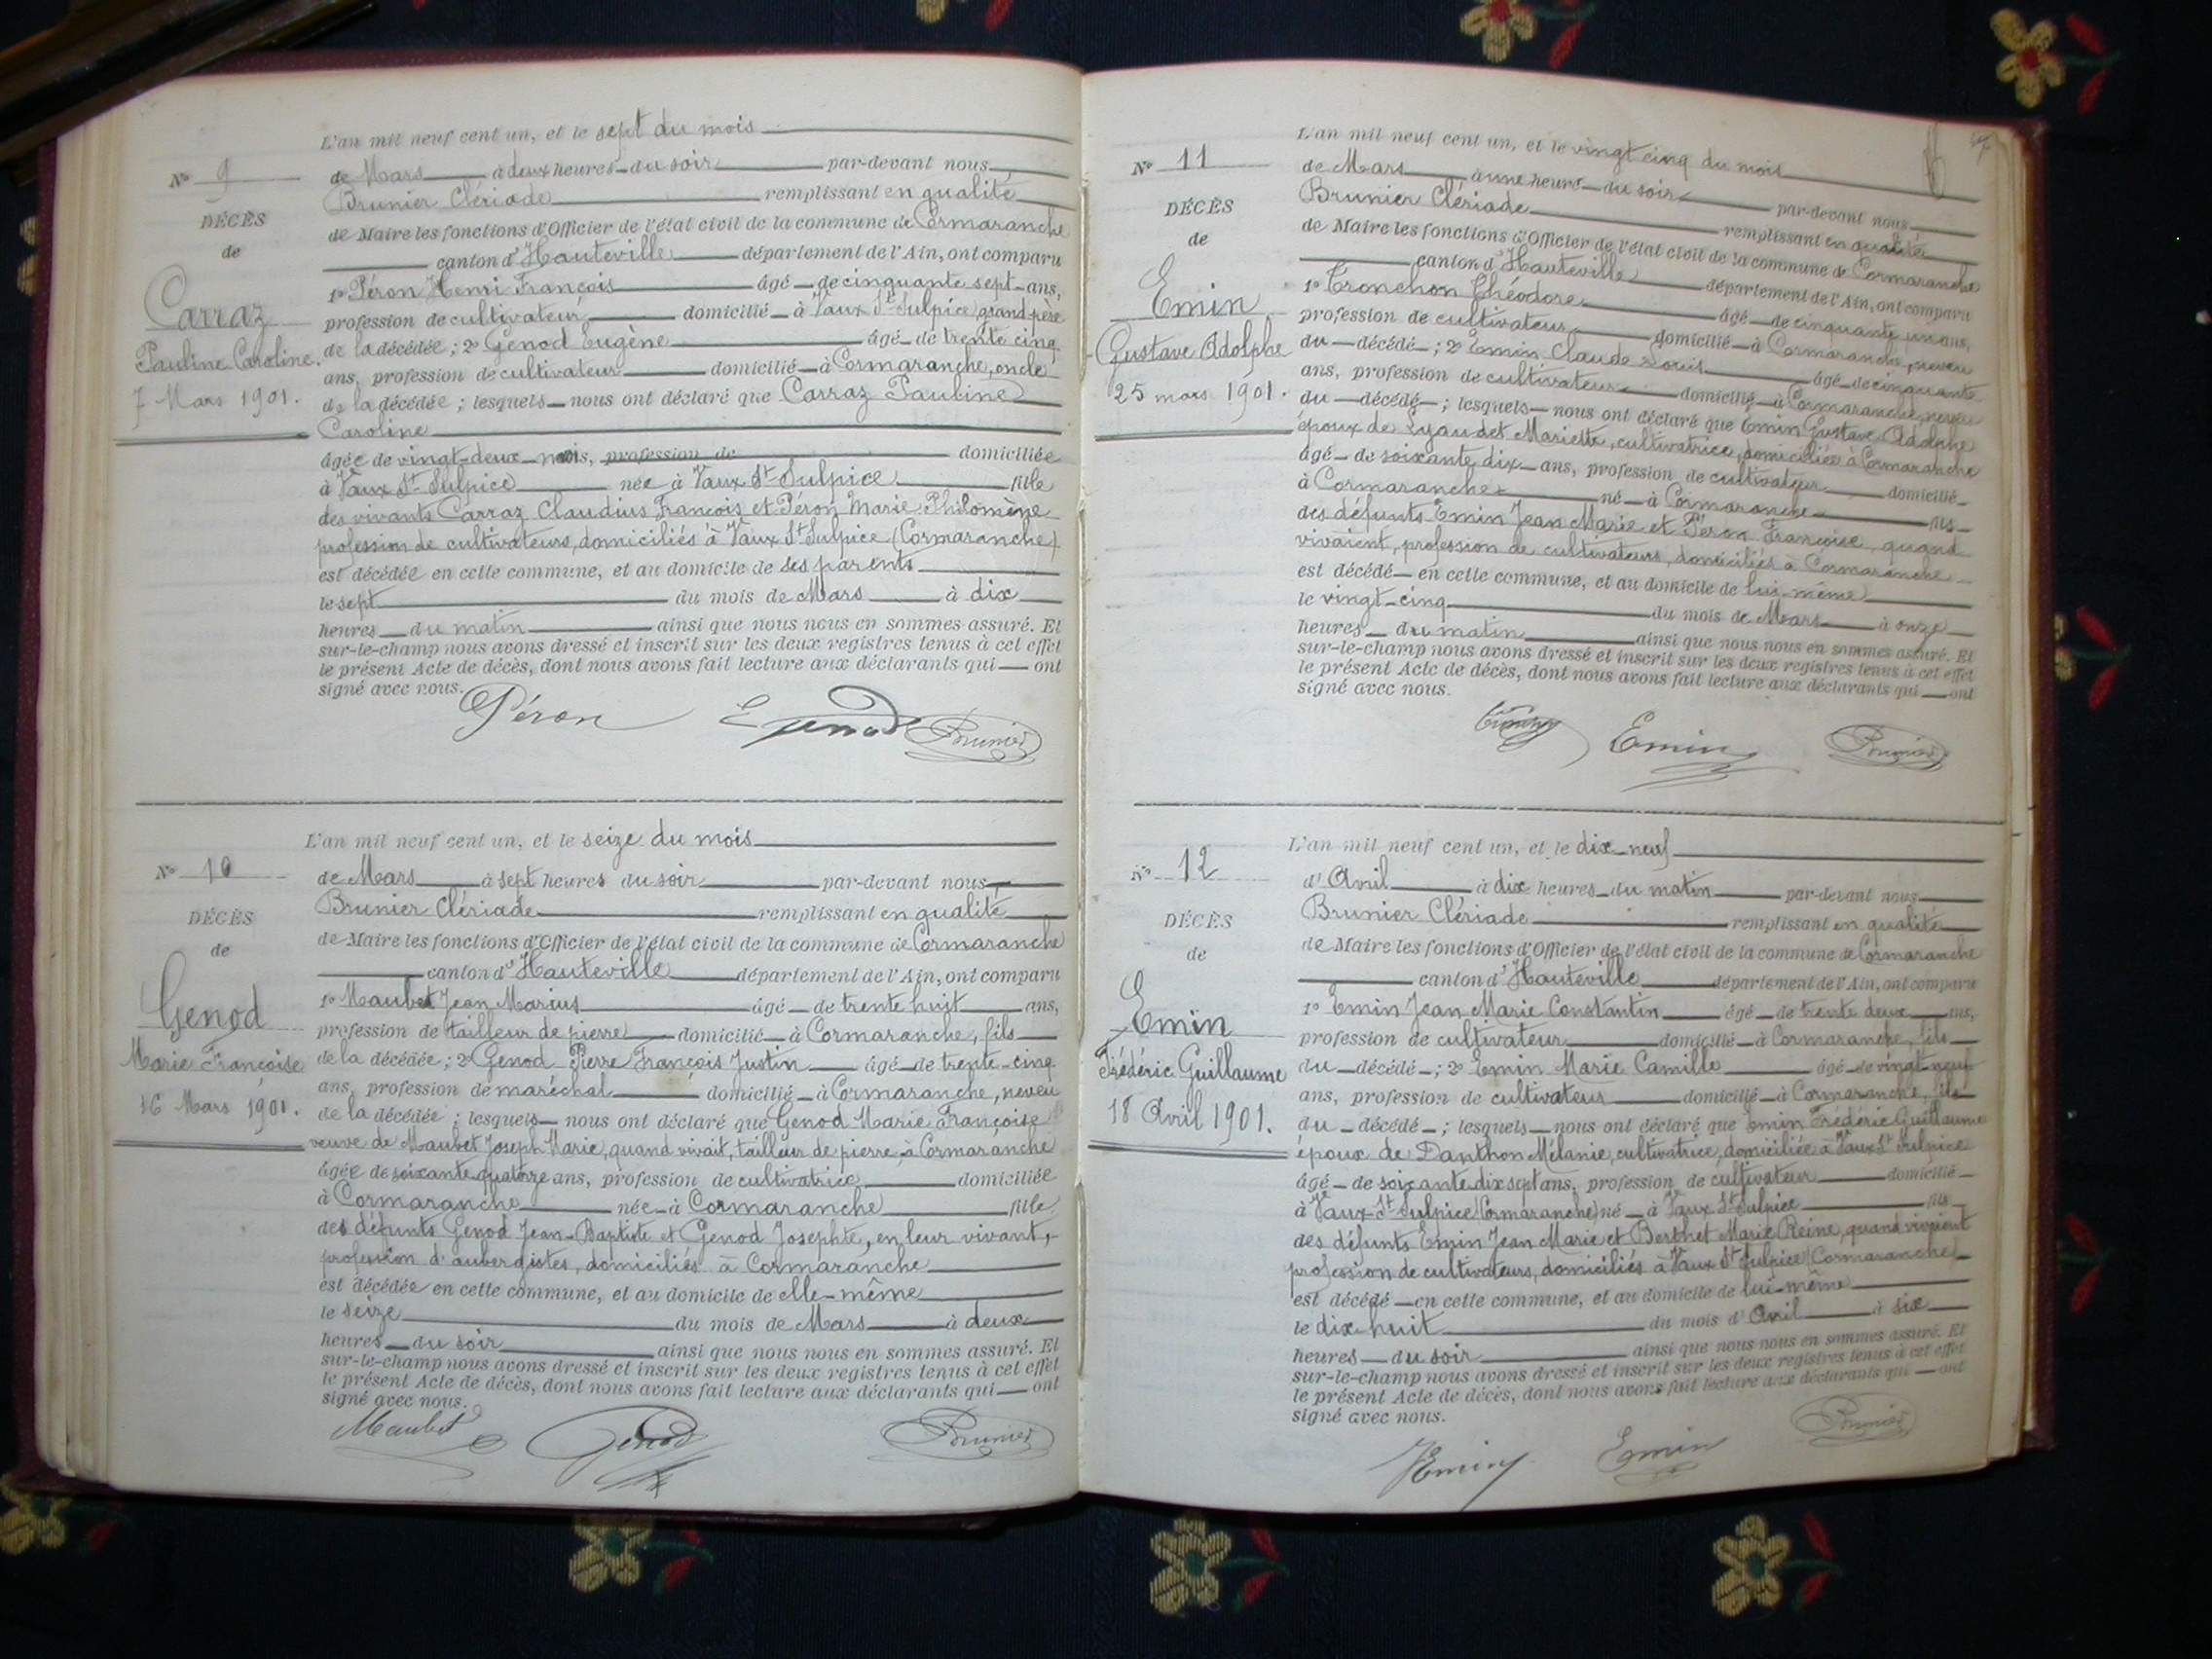 L'an mil neuf cent un, et le sept du mois
N° 9
de Mars à deux heures du soir par-devant nous
Brunier Clériade remplissant en qualité
DÉCÈS
de Maire les fonctions d'Officier de l'état civil de la commune de Cormaranche
de
canton d'Hauteville département de l'Ain, ont comparu
1° Péron Henri François âgé de cinquante sept ans,
Carraz
profession de cultivateur domicilié à Vaux St Sulpice, grand père
Pauline Caroline.
de la décédée ; 2° Genod Eugène âgé de trente cinq
ans, profession de cultivateur domicilié à Cormaranche, oncle
7 Mars 1901.
de la décédée ; lesquels nous ont déclaré que Carraz Pauline
Caroline
âgée de vingt-deux mois, profession de domiciliée
à Vaux St Sulpice née à Vaux St Sulpice fille
des vivants Carraz Claudius François et Péron Marie Philomène
profession de cultivateurs, domiciliés à Vaux St Sulpice (Cormaranche)
est décédée en cette commune, et au domicile de ses parents
le sept du mois de Mars à dix
heures du matin ainsi que nous nous en sommes assuré. Et
sur-le-champ nous avons dressé et inscrit sur les deux registres tenus à cet effet
le présent Acte de décès, dont nous avons fait lecture aux déclarants qui ont
signé avec nous.
Péron E Genod Brunier
L'an mil neuf cent un, et le seize du mois
N° 10
de Mars à sept heures du soir par-devant nous
Brunier Clériade remplissant en qualité
DÉCÈS
de Maire les fonctions d'Officier de l'état civil de la commune de Cormaranche
de
canton d'Hauteville département de l'Ain, ont comparu
1° Maubet Jean Marius âgé de trente huit ans,
Genod
profession de tailleur de pierre domicilié à Cormaranche, fils
Marie Françoise
de la décédée ; 2° Genod Pierre François Justin âgé de trente-cinq
ans, profession de maréchal domicilié à Cormaranche, neveu
16 Mars 1901.
de la décédée ; lesquels nous ont déclaré que Genod Marie Françoise
veuve de Maubet Joseph Marie, quand vivait, tailleur de pierre, à Cormaranche
âgée de soixante quatorze ans, profession de cultivatrice domiciliée
à Cormaranche née à Cormaranche fille
des défunts Genod Jean-Baptiste et Genod Josephte, en leur vivant,
profession d'aubergistes, domiciliés à Cormaranche
est décédée en cette commune, et au domicile de elle-même
le seize du mois de Mars à deux
heures du soir ainsi que nous nous en sommes assuré. Et
sur-le-champ nous avons dressé et inscrit sur les deux registres tenus à cet effet
le présent Acte de décès, dont nous avons fait lecture aux déclarants qui ont
signé avec nous.
Maubet Genod Brunier
L'an mil neuf cent un, et le vingt cinq du mois
N° 11
de Mars à une heure du soir par-devant nous
Brunier Clériade remplissant en qualité
DÉCÈS
de Maire les fonctions d'Officier de l'état civil de la commune de Cormaranche
de
canton d'Hauteville département de l'Ain, ont comparu
1° Tronchon Théodore âgé de cinquante un ans,
Emin
profession de cultivateur domicilié à Cormaranche, neveu
Gustave Adolphe
du décédé ; 2° Emin Claude Louis âgé de cinquante
ans, profession de cultivateur domicilié à Cormaranche, neveu
25 mars 1901.
du décédé ; lesquels nous ont déclaré que Emin Gustave Adolphe
époux de Lyaudet Mariette, cultivatrice, domiciliée à Cormaranche
âgé de soixante dix ans, profession de cultivateur domicilié
à Cormaranche né à Cormaranche fils
des défunts Emin Jean Marie et Péron Françoise, quand
vivaient, profession de cultivateurs, domiciliés à Cormaranche
est décédé en cette commune, et au domicile de lui-même
le vingt-cinq du mois de Mars à onze
heures du matin ainsi que nous nous en sommes assuré. Et
sur-le-champ nous avons dressé et inscrit sur les deux registres tenus à cet effet
le présent Acte de décès, dont nous avons fait lecture aux déclarants qui ont
signé avec nous.
Emin Brunier
L'an mil neuf cent un, et le dix-neuf
N° 12
d'Avril à dix heures du matin par-devant nous
Brunier Clériade remplissant en qualité
DÉCÈS
de Maire les fonctions d'Officier de l'état civil de la commune de Cormaranche
de
canton d'Hauteville département de l'Ain, ont comparu
1° Emin Jean Marie Constantin âgé de trente deux ans,
Emin
profession de cultivateur domicilié à Cormaranche, fils
Frédéric Guillaume
du décédé ; 2° Emin Marie Camille âgé de vingt-neuf
ans, profession de cultivateur domicilié à Cormaranche, fils
18 Avril 1901.
du décédé ; lesquels nous ont déclaré que Emin Frédéric Guillaume
époux de Danthon Mélanie, cultivatrice, domiciliée à Vaux St Sulpice
âgé de soixante dix sept ans, profession de cultivateur domicilié
à Vaux St Sulpice (Cormaranche) né à Vaux St Sulpice fils
des défunts Emin Jean Marie et Berthet Marie Reine, quand vivaient
profession de cultivateurs, domiciliés à Vaux St Sulpice (Cormaranche)
est décédé en cette commune, et au domicile de lui-même
le dix-huit du mois d'Avril à six
heures du soir ainsi que nous nous en sommes assuré. Et
sur-le-champ nous avons dressé et inscrit sur les deux registres tenus à cet effet
le présent Acte de décès, dont nous avons fait lecture aux déclarants qui ont
signé avec nous.
Emin Emin Brunier